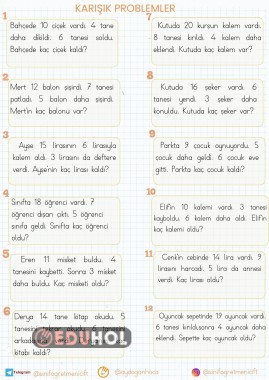 KARIŞIK PROBLEMLER
1
Bahçede 10 çiçek vardı. 4 tane
daha dikildi. 6 tanesi soldu.
Bahçede kaç çiçek kaldı?
2
Mert 12 balon şişirdi. 7 tanesi
patladı. 5 balon daha şişirdi.
Mert'in kaç balonu var?
3
Ayşe 15 lirasının 6 lirasıyla
kalem aldı. 3 lirasını da deftere
verdi. Ayşe'nin kaç lirası kaldı?
4
Sınıfta 18 öğrenci vardı. 7
öğrenci dışarı çıktı. 5 öğrenci
sınıfa geldi. Sınıfta kaç öğrenci
oldu?
5
Eren 11 misket buldu. 4
tanesini kaybetti. Sonra 3 misket
daha buldu. Kaç misketi oldu?
6
Derya 14 tane kitap okudu. 5
tanesini tekrar okudu. 6 tanesini
arkadaşına
kitabı kaldı?
7
Kutuda 20 kurşun kalem vardı.
8 tanesi kırıldı. 4 kalem daha
eklendi. Kutuda kaç kalem var?
8
Kutuda 16 şeker vardı. 6
tanesi yendi. 3 şeker daha
konuldu. Kutuda kaç şeker var?
9
Parkta 9 çocuk oynuyordu. 5
çocuk daha geldi. 6 çocuk eve
gitti. Parkta kaç çocuk kaldı?
10
Elif'in 10 kalemi vardı. 3 tanesi
kayboldu. 6 kalem daha aldı. Elif'in
kaç kalemi oldu?
11
Cenk'in cebinde 14 lira vardı. 9
lirasını harcadı. 5 lira da annesi
verdi. Kaç lirası oldu?
12
Oyuncak sepetinde 19 oyuncak vardı.
6 tanesi kırıldı,sonra 4 oyuncak daha
eklendi. Sepette kaç oyuncak oldu?
EDUHOL
Telegram